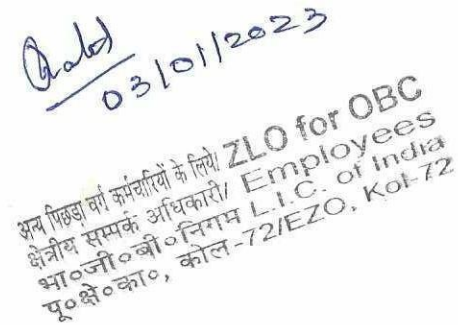 03/01/2023
अन्य पिछड़ा वर्ग कर्मचारियों के लिये/ ZLO for OBC
क्षेत्रीय सम्पर्क अधिकारी/ Employees
भा०जी०बी०निगम L.I.C. of India
पू०क्षे०का०, कोल-72/EZO, Kol-72